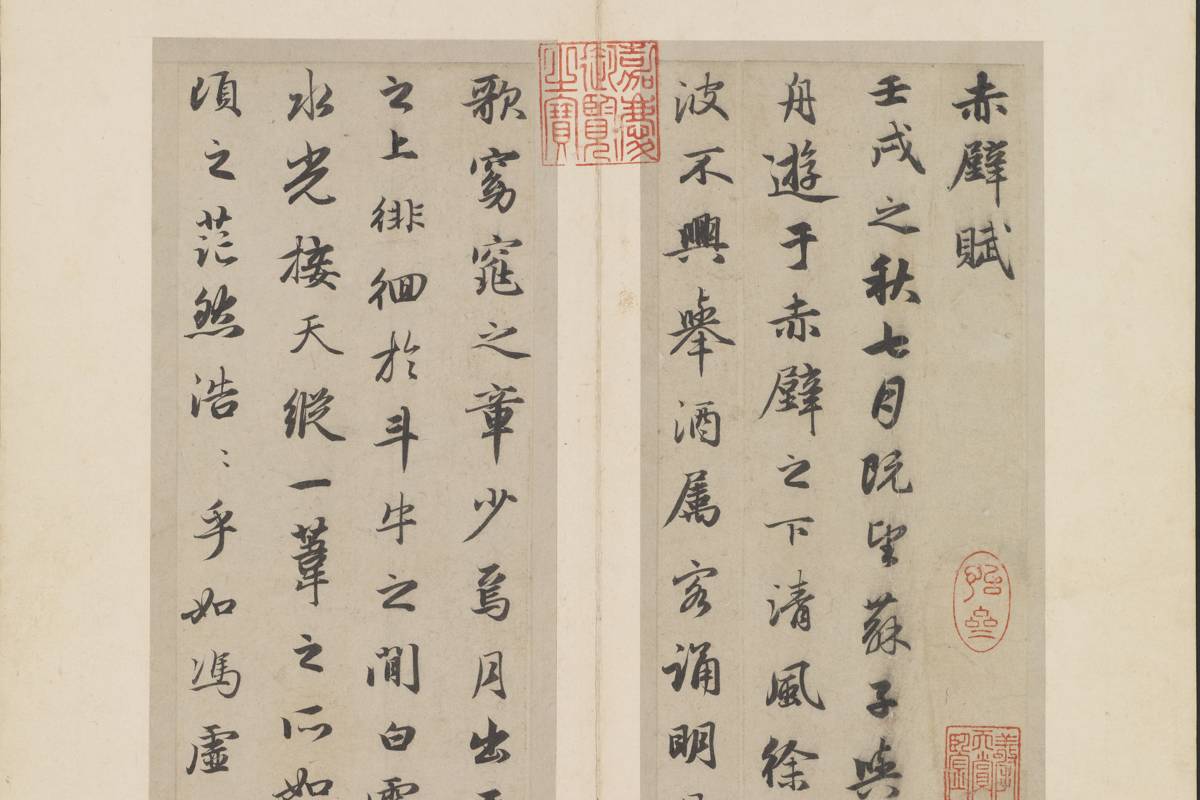 赤壁賦
壬戌之秋七月既望蘇子與
舟遊于赤壁之下清風徐
波不興舉酒屬客誦明
嘉慶御覽之寶
歌窈窕之章少焉月出
之上徘徊於斗牛之間白
水光接天縱一葦之所如
頃之茫然浩〻乎如馮虛